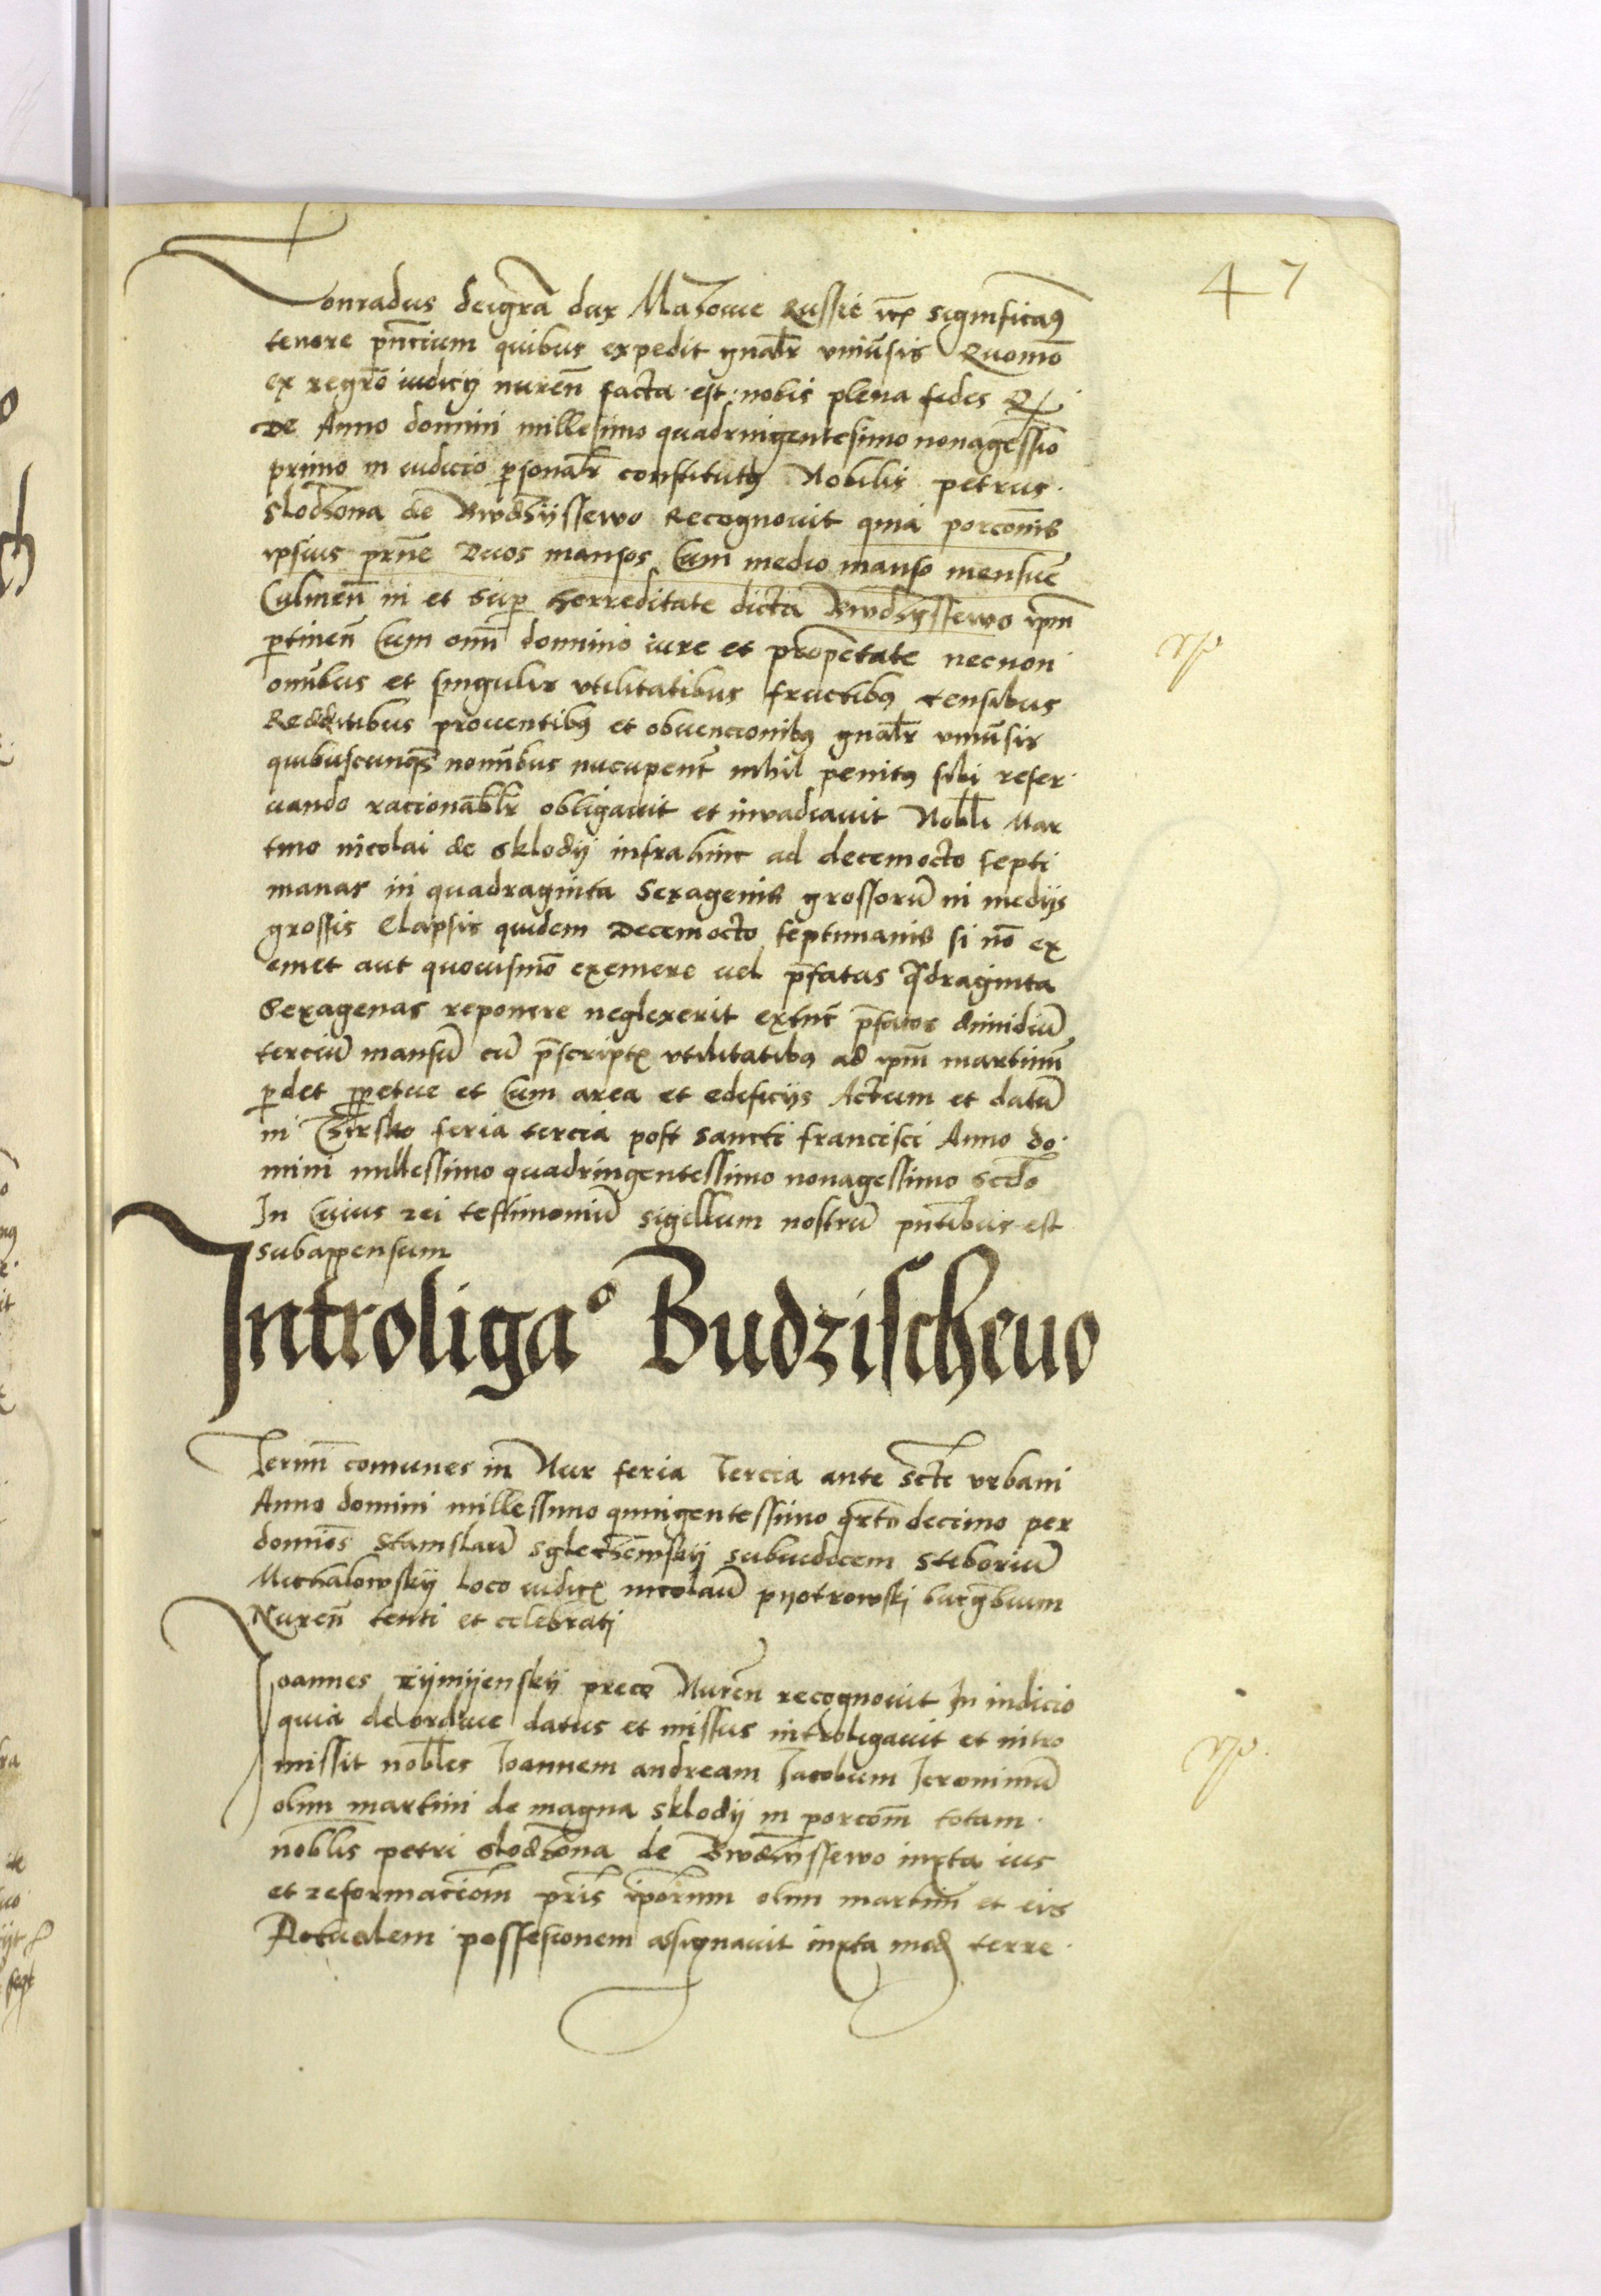 47
Conradus dei gr̃a dux Mazouie Russie etc significam⁹
tenore pñcium quibus expedit gnãlr vniũsis Quomõ
ex regr̃o iudicij nureñ facta est nobis plena fides Q
de Anno domini millesimo quadringentesimo nonagessĩo
primo in iudicio p̱sonalr̃ constitut⁹ Nobilis petrus
slodzona de Bwdzijssewo Recognouit quia porcõnis
ipsius pr̃ne Duos mansos Cum medio manso mensure
Culmeñ in et Sup̱ herreditate dicta Bwdzijssewo ip̃m
p̱tineñ Cum om̃i dominio iure et propr̃etate necnon
om̃ibus et singulis vtilitatibus fructib⁹ censibus
Redditibus prouentib⁹ et obuencionib⁹ gnãlr vniũsis
quibuscunq₃ nomĩbus nucupent̃ nihil penit⁹ sibi reser
uando racionabl̃r obligauit et inuadiauit Nobl̃i Mar
tino nicolai de sklodij infra hinc ad decemocto septi
manas in quadraginta Sexagenis grossorũ in medijs
grossis Elapsis quidem Decemocto septimanis si nõ ex
emet aut quouismõ exemere uel p̃fatas q̃draginta
Sexagenas reponere neglexerit extũc p̃fatos dimidiũ
terciũ mansũ cũ p̃script̃ vtilitatib⁹ ad ip̃m martinũ
p̱det p̱petue et Cum area et edificijs Actum et datũ
in Czirsko feria tercia post sancti francisci Anno do
mini millessimo quadringentessimo nonagessimo secdõ
In Cuius rei testimoniũ sigillum nostrũ pñtibus est
subappensum
Introligaᵒ Budzischeuo
Termĩ comunes in Nur feria Tercia ante Sctĩ vrbani
Anno domini millessimo quingentessimo qrtõ decimo per
dominõs Stanislaũ sglechẽwskij subiudicem Stiboriũ
Michalowskij loco iudic̃ nicolaũ pyotrowskj burgr̃bium
Nureñ tenti et celebratj
Ioannes zijmijenskij preco Nureñ recognouit In iudicio
quia de ordĩue datus et missus introligauit et intro
missit nobl̃es Ioannem andream Iacobum Ieronimũ
olim martini de magna sklodij in porcõm totam
nobl̃is petri slodzona de Bwdzijssewo iuxta ius
et reformaciõm pr̃is ip̃orum olim martinĩ et eis
Actualem possesionem assignauit iuxta mod̃ terre